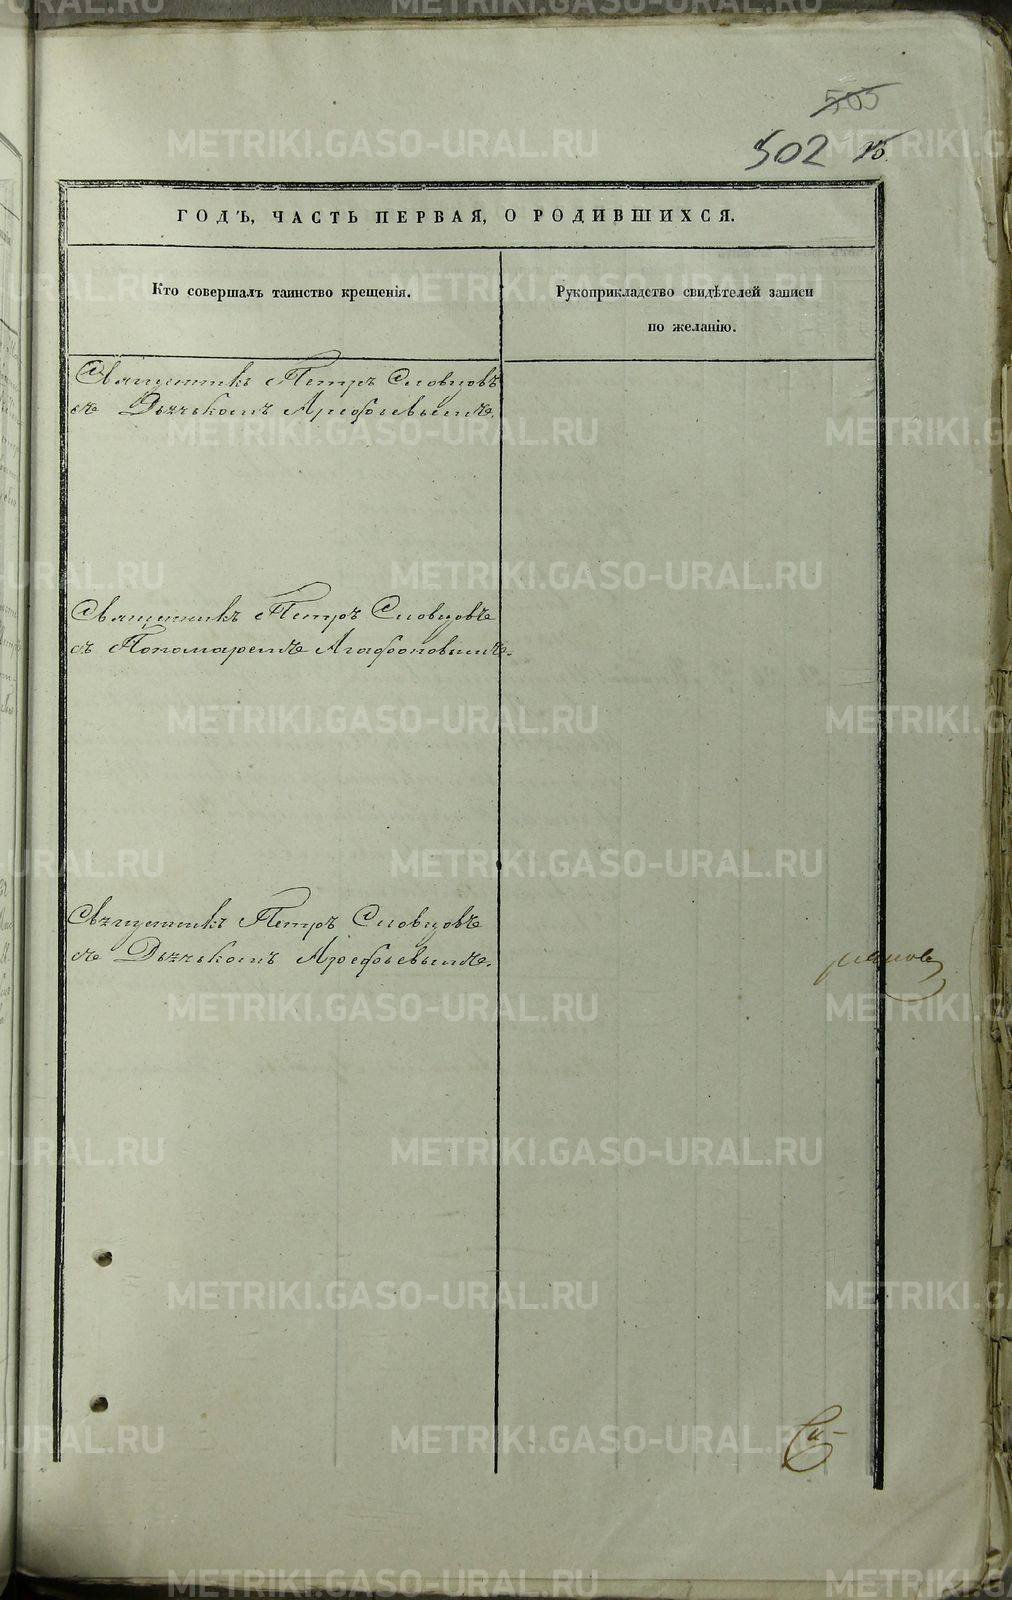 505
502 15.
ГОДЪ, ЧАСТЬ ПЕРВАЯ, О РОДИВШИХСЯ.
Кто совершалъ таинство крещенія.
Рукоприкладство свидѣтелей записи
по желанію.
Священникъ Петръ Словцовъ
съ Дьячькомъ Арефьевымъ.
Священникъ Петръ Словцовъ
съ Пономаремъ Агафоновымъ.
Священникъ Петръ Словцовъ
съ Дьячькомъ Арефьевымъ.
METRIKI.GASO-URAL.RU